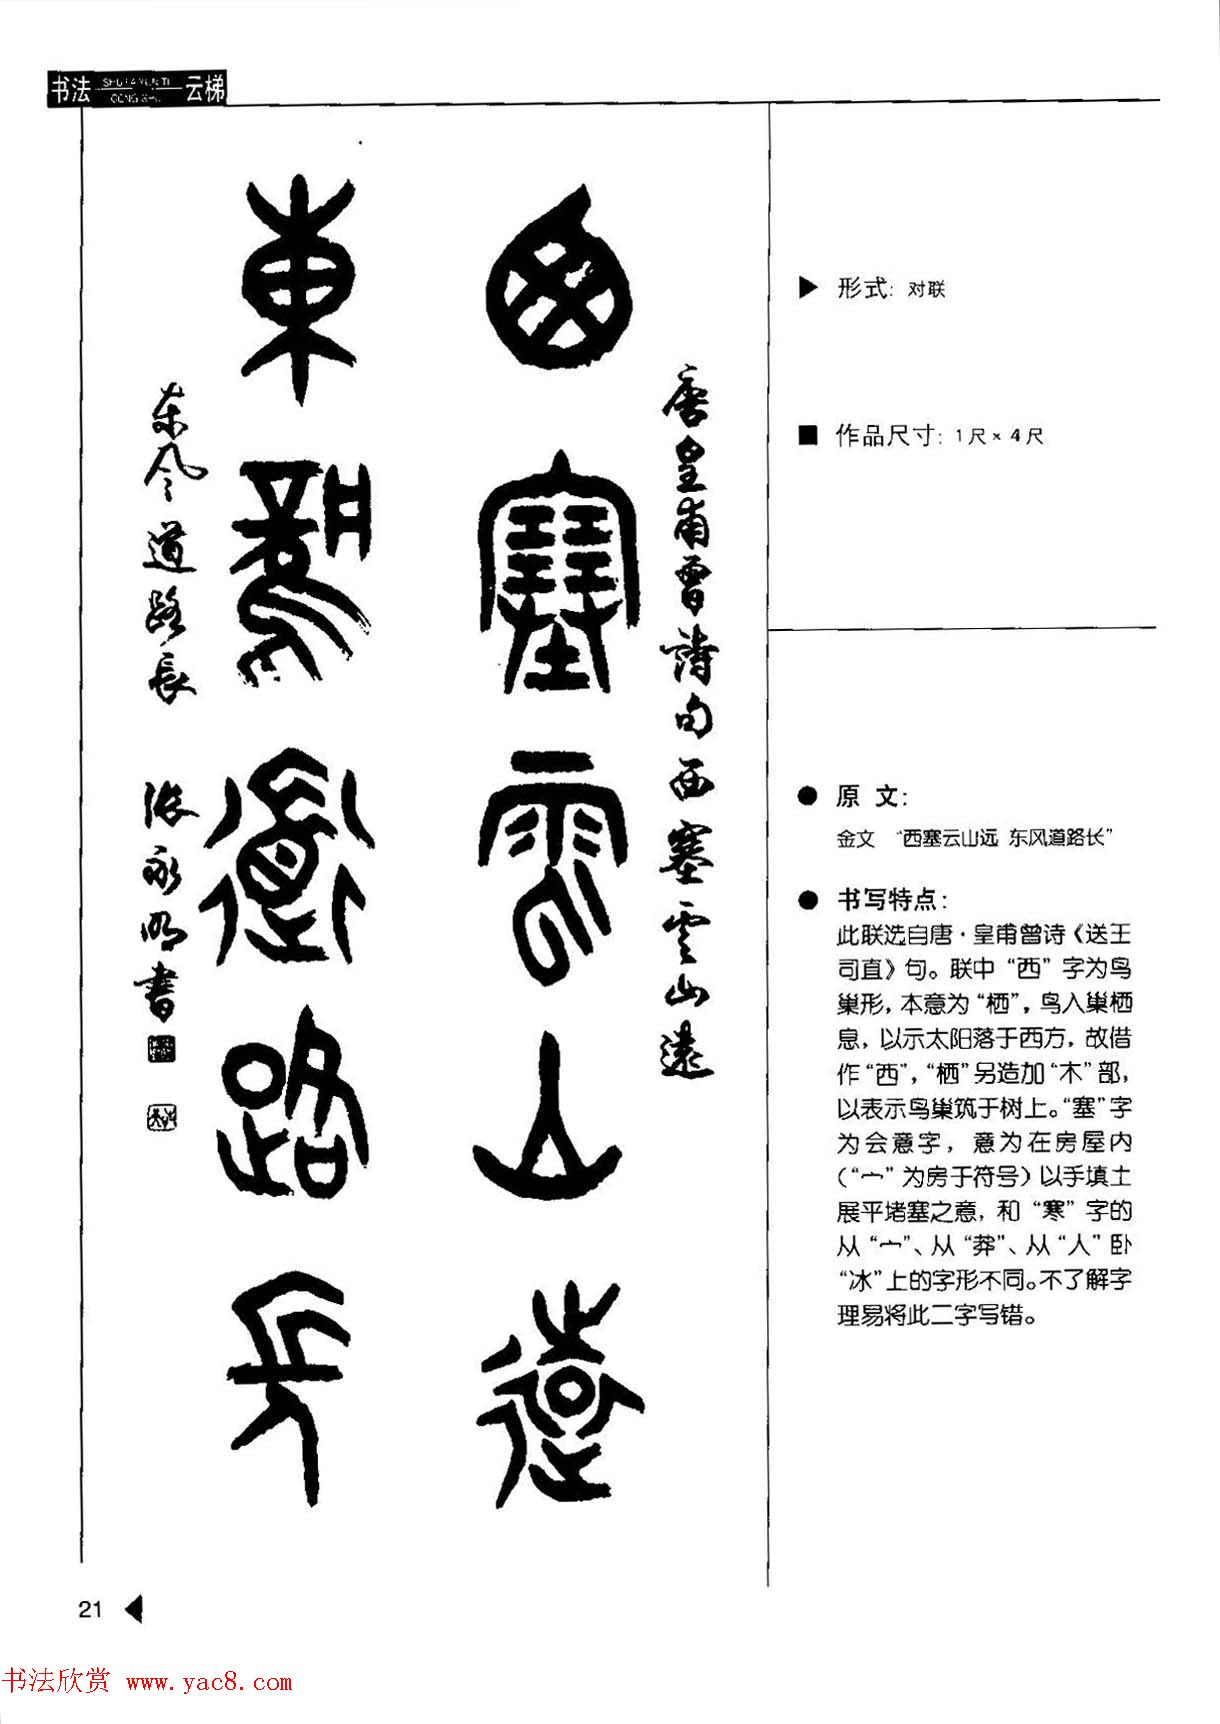 书法 SHU FA YUN TI CONG SHU 云梯
西塞雲山遠
東風道路長
唐皇甫曾詩句西塞雲山遠
东风道路長 張永明書
形式：对联
作品尺寸：1尺×4尺
原 文：
金文 “西塞云山远 东风道路长”
书写特点：
此联选自唐·皇甫曾诗《送王
司直》句。联中“西”字为鸟
巢形，本意为“栖”，鸟入巢栖
息，以示太阳落于西方，故借
作“西”，“栖”另造加“木”部，
以表示鸟巢筑于树上。“塞”字
为会意字，意为在房屋内
（“宀”为房于符号）以手填土
展平堵塞之意，和“寒”字的
从“宀”、从“茻”、从“人”卧
“冰”上的字形不同。不了解字
理易将此二字写错。
21
书法欣赏 www.yac8.com